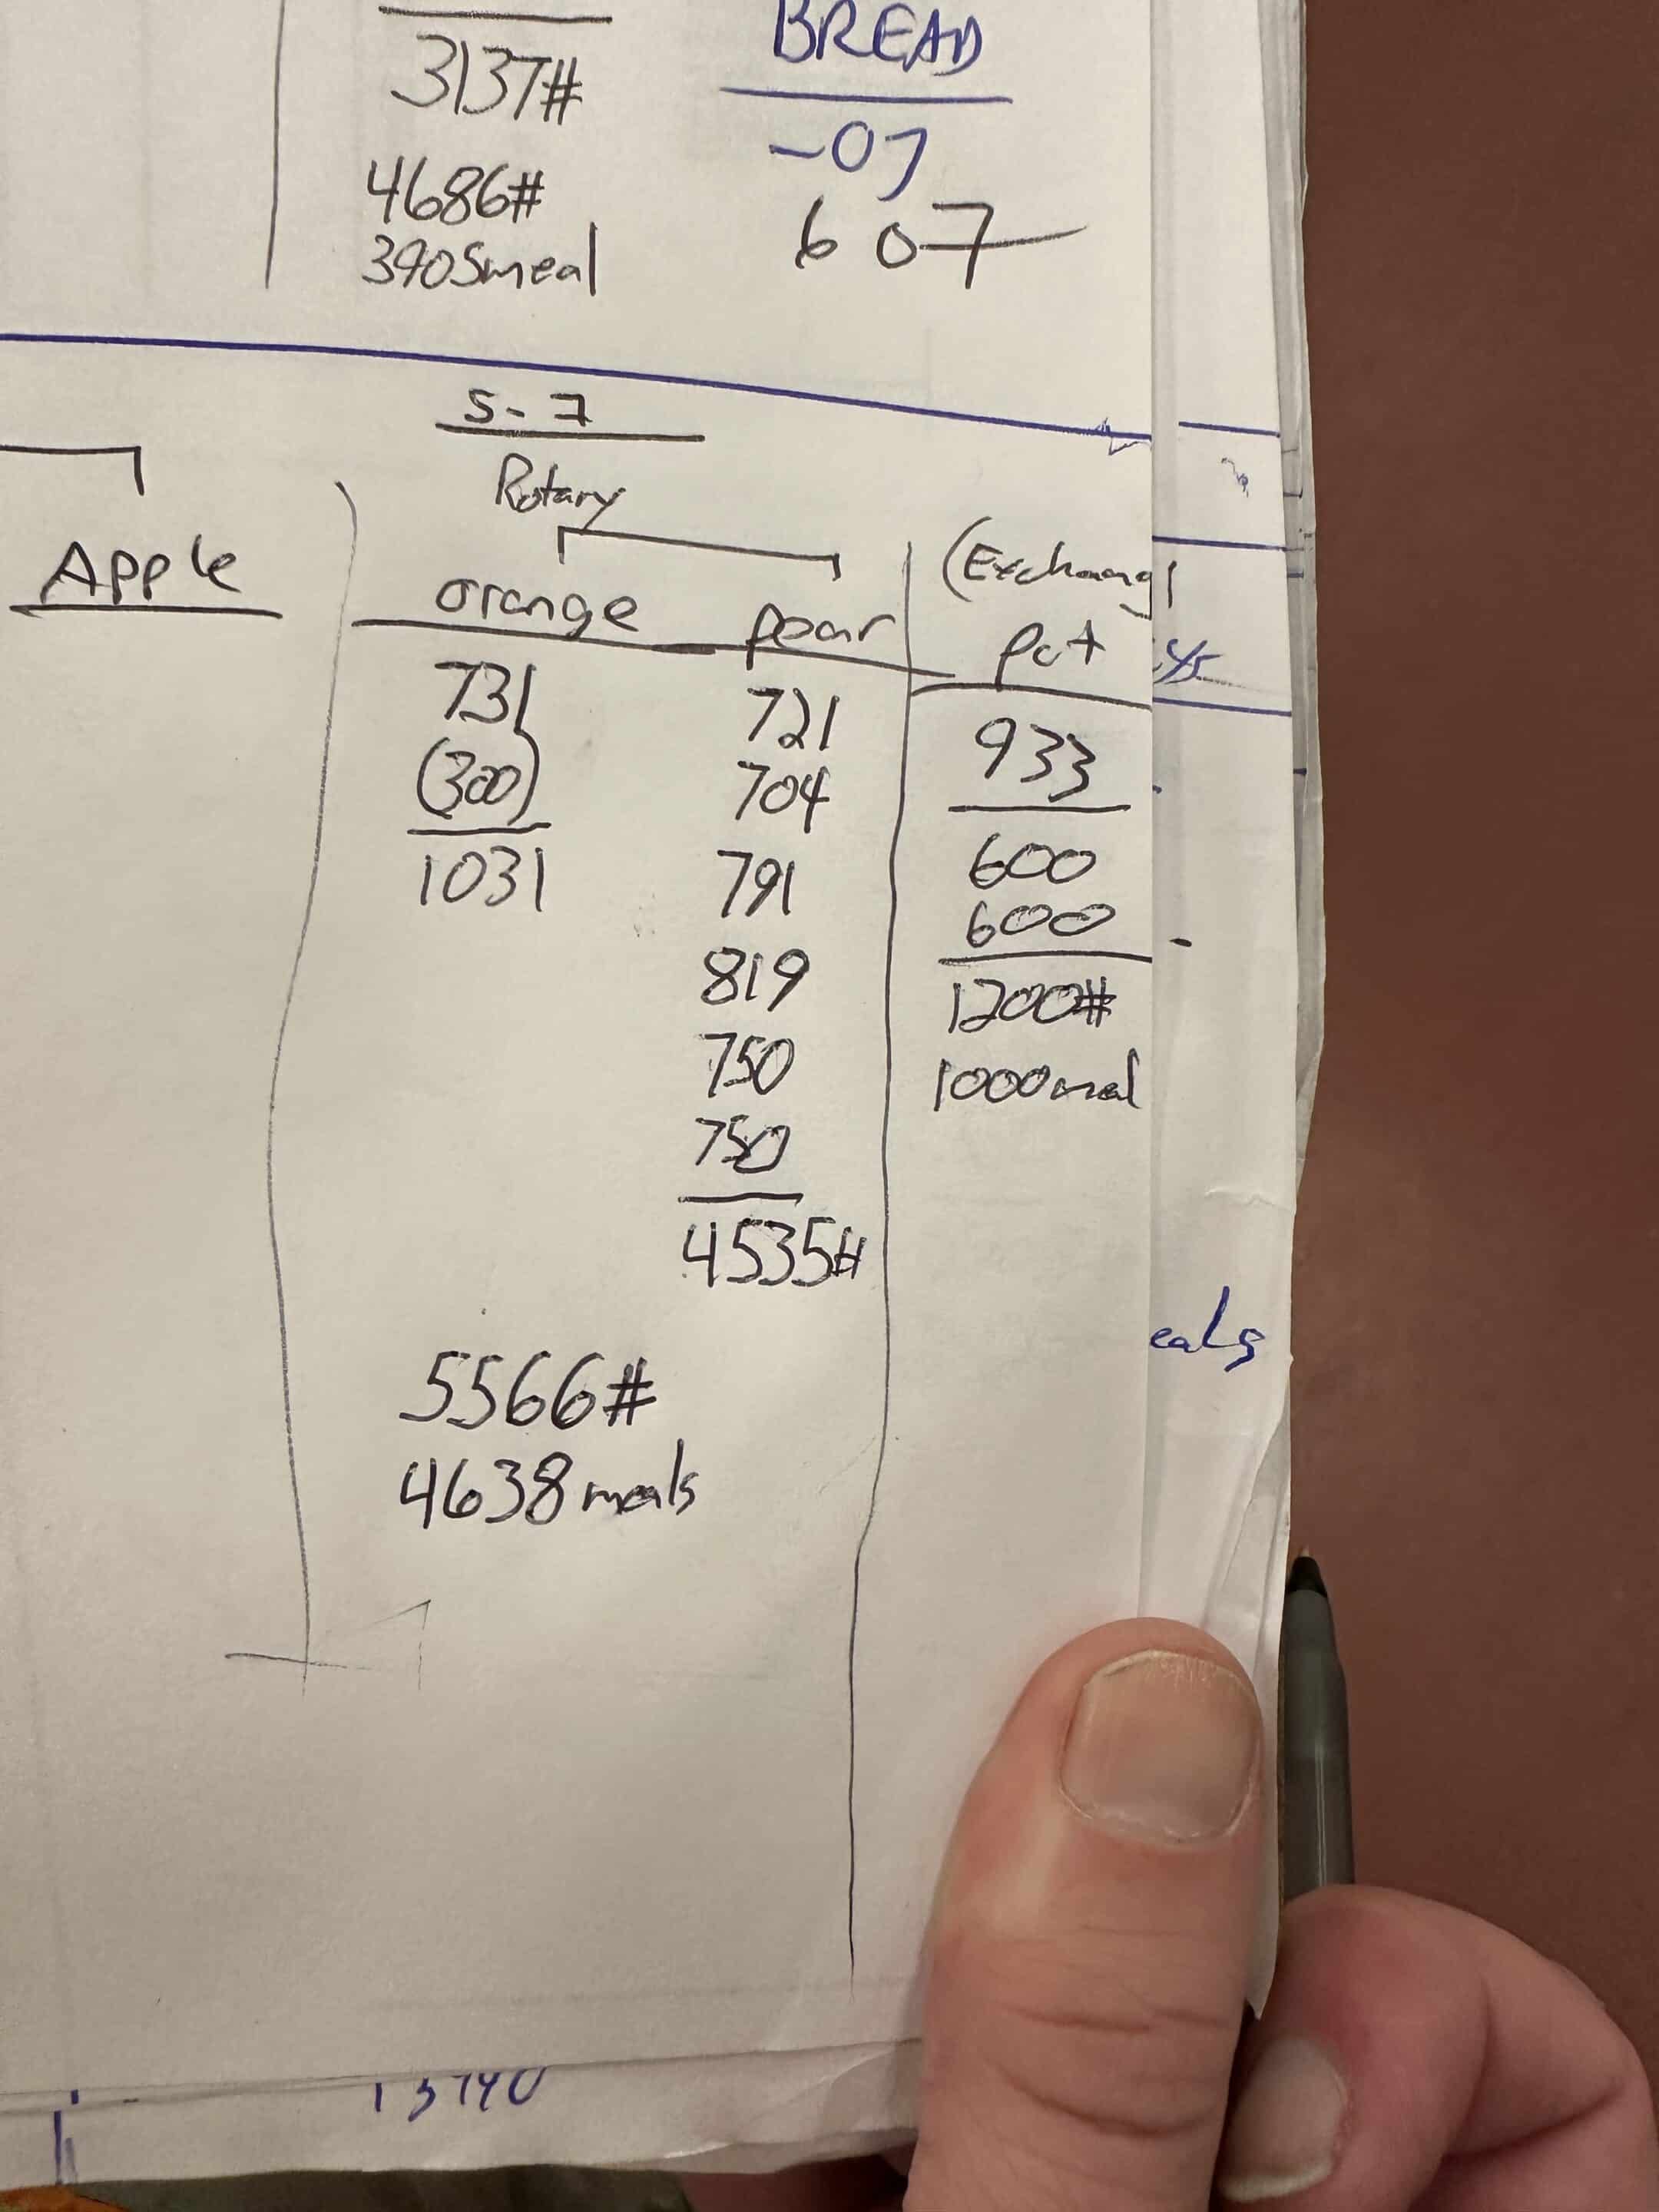 3137#
4686#
3905meal
BREAD
-07
607
5-7
Rotary
Apple
orange
731
(300)
1031
pear
721
704
791
819
750
750
4535#
5566#
4638 meals
(Exchang
pot
933
600
600
1200#
1000meal
eals